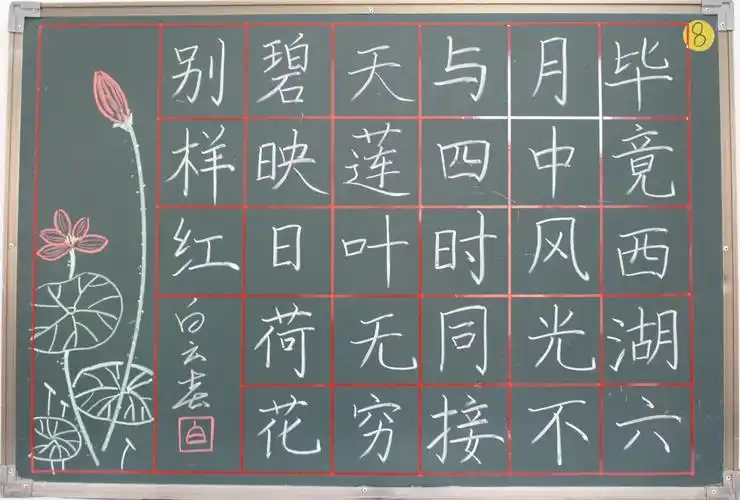 18
毕竟西湖六
月中风光不
与四时同接
天莲叶无穷
碧映日荷花
别样红
白云
白